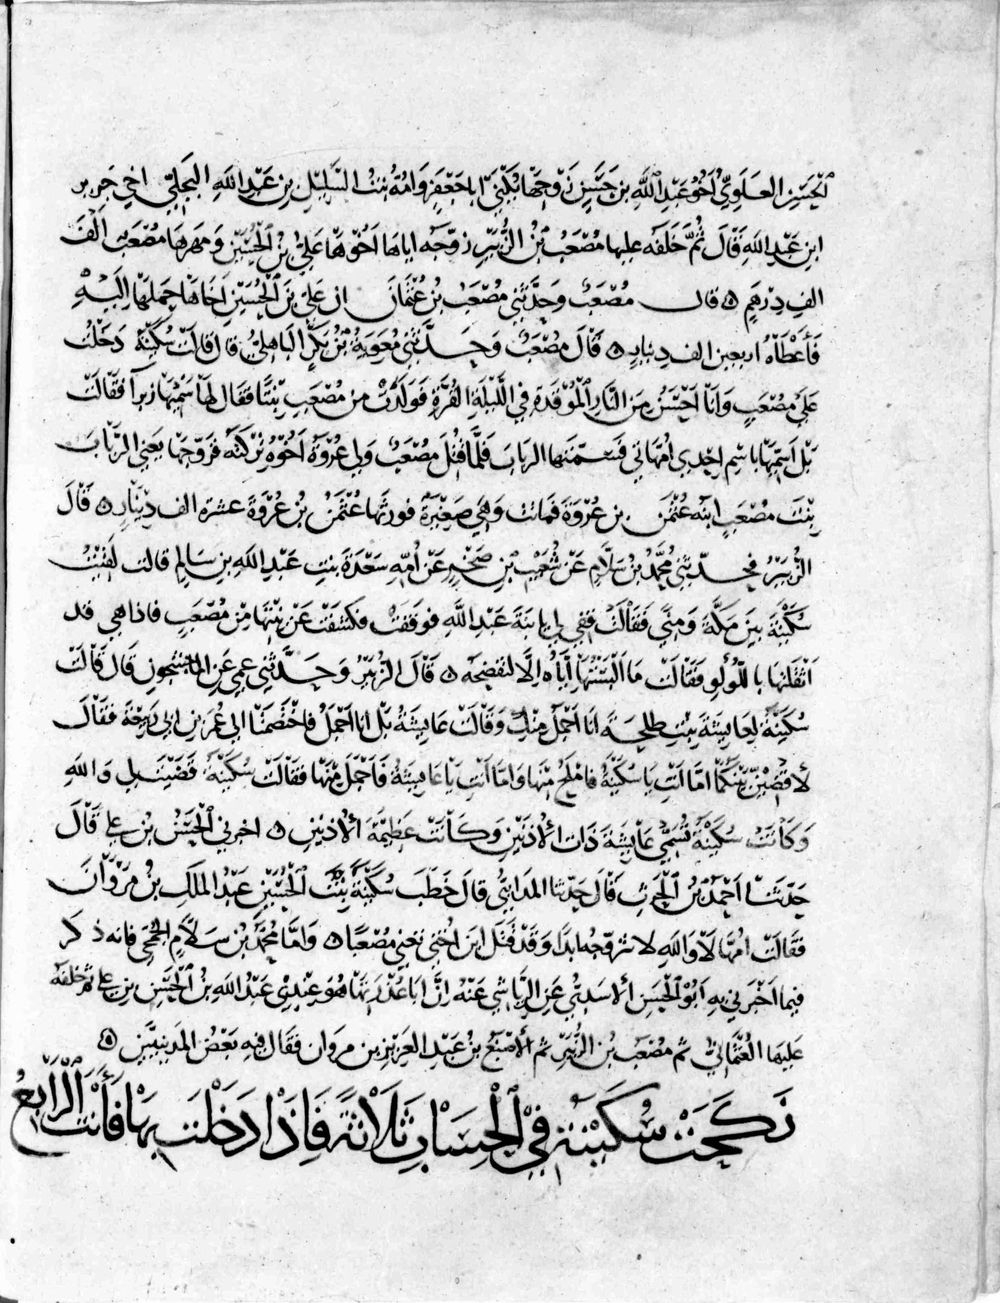 الحسين العلوي اخو عبد الله بن حسن زوجها يكنى ابا جعفر وامه بنت السليل بن عبد الله البجلي اخي جرير
ابن عبد الله قال ثم خلفه عليها مصعب بن الزبير زوجه اياها اخوها علي بن الحسين ومهرها مصعب الف
الف درهم ه قال مصعب وحدثني مصعب بن عثمان ان علي بن الحسين اخاها حملها اليه
فأعطاه اربعين الف دينار ه قال مصعب وحدثني معوية بن بكر الباهلي قال قالت سكينة دخلت
على مصعب وانا احسن من النار الموقدة في الليلة القرة فولدت من مصعب بنتا فقال لها سميها زبرا فقالت
بل اسميها باسم احدى امهاتي فسمتها الرباب فلما قتل مصعب ولي عروة اخوه تركته فزوجها يعني الرباب
بنت مصعب ابنه عثمن بن عروة فماتت وهي صغيرة فورثها عثمن بن عروة عشرة الف دينار ه قال
الزبير فحدثني محمد بن سلام عن شعيب بن صخر عن امه سعدة بنت عبد الله بن سالم قالت لقيت
سكينة بين مكة ومنى فقالت قفي لي يابنة عبد الله فوقفت فكشفت عن بنتها من مصعب فاذا هي قد
اثقلتها باللؤلؤ فقالت ما البستها اياه الا لتفضحه ه قال الزبير وحدثني عمي عن الماجشون قال قالت
سكينة لعايشة بنت طلحة انا اجمل منك وقالت عايشة بل انا اجمل فاختصمتا الى عمر بن ابي ربيعة فقال
لاقضين بينكما اما انت يا سكينة فاملح منها واما انت يا عايشة فاجمل منها فقالت سكينة قضيت لي والله
وكانت سكينة تسمي عايشة ذات الاذنين وكانت عظيمة الاذنين ه اخبرني الحسن بن علي قال
حدثنا احمد بن الحرث قال حدثنا المدايني قال خطب سكينة بنت الحسين عبد الملك بن مروان
فقالت امها لا والله لا تزوجه ابدا وقد قتل ابن اختي تعني مصعبا ه واما محمد بن سلام الجمحي فانه ذكر
فيما اخبرني به ابو الحسن الاسدي عن الرياشي عنه ان ابا عذرتها هو عبد الله بن الحسن بن علي ثم خلفه
عليها العثماني ثم مصعب بن الزبير ثم الاصبغ بن عبد العزيز بن مروان فقال فيه بعض المدينيين ه
نكحت سكينة في الحساب ثلاثة فاذا دخلت بها فأنت الرابع